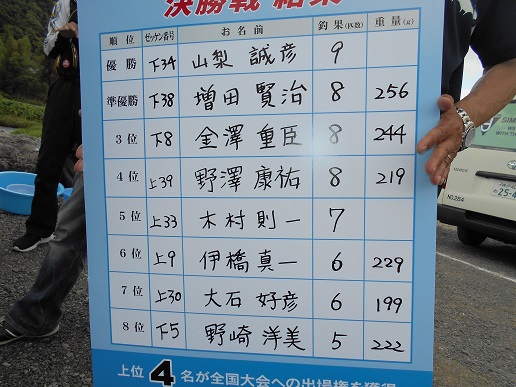 決勝戦 結果
順位 ゼッケン番号 お名前 釣果(匹数) 重量(g)
優勝 下34 山梨 誠彦 9
準優勝 下38 増田 賢治 8 256
3位 下8 金澤 重臣 8 244
4位 上39 野澤 康祐 8 219
5位 上33 木村 則一 7
6位 上9 伊橋 真一 6 229
7位 上30 大石 好彦 6 199
8位 下5 野崎 洋美 5 222
上位4名が全国大会への出場権を獲得
SIM
NO.284